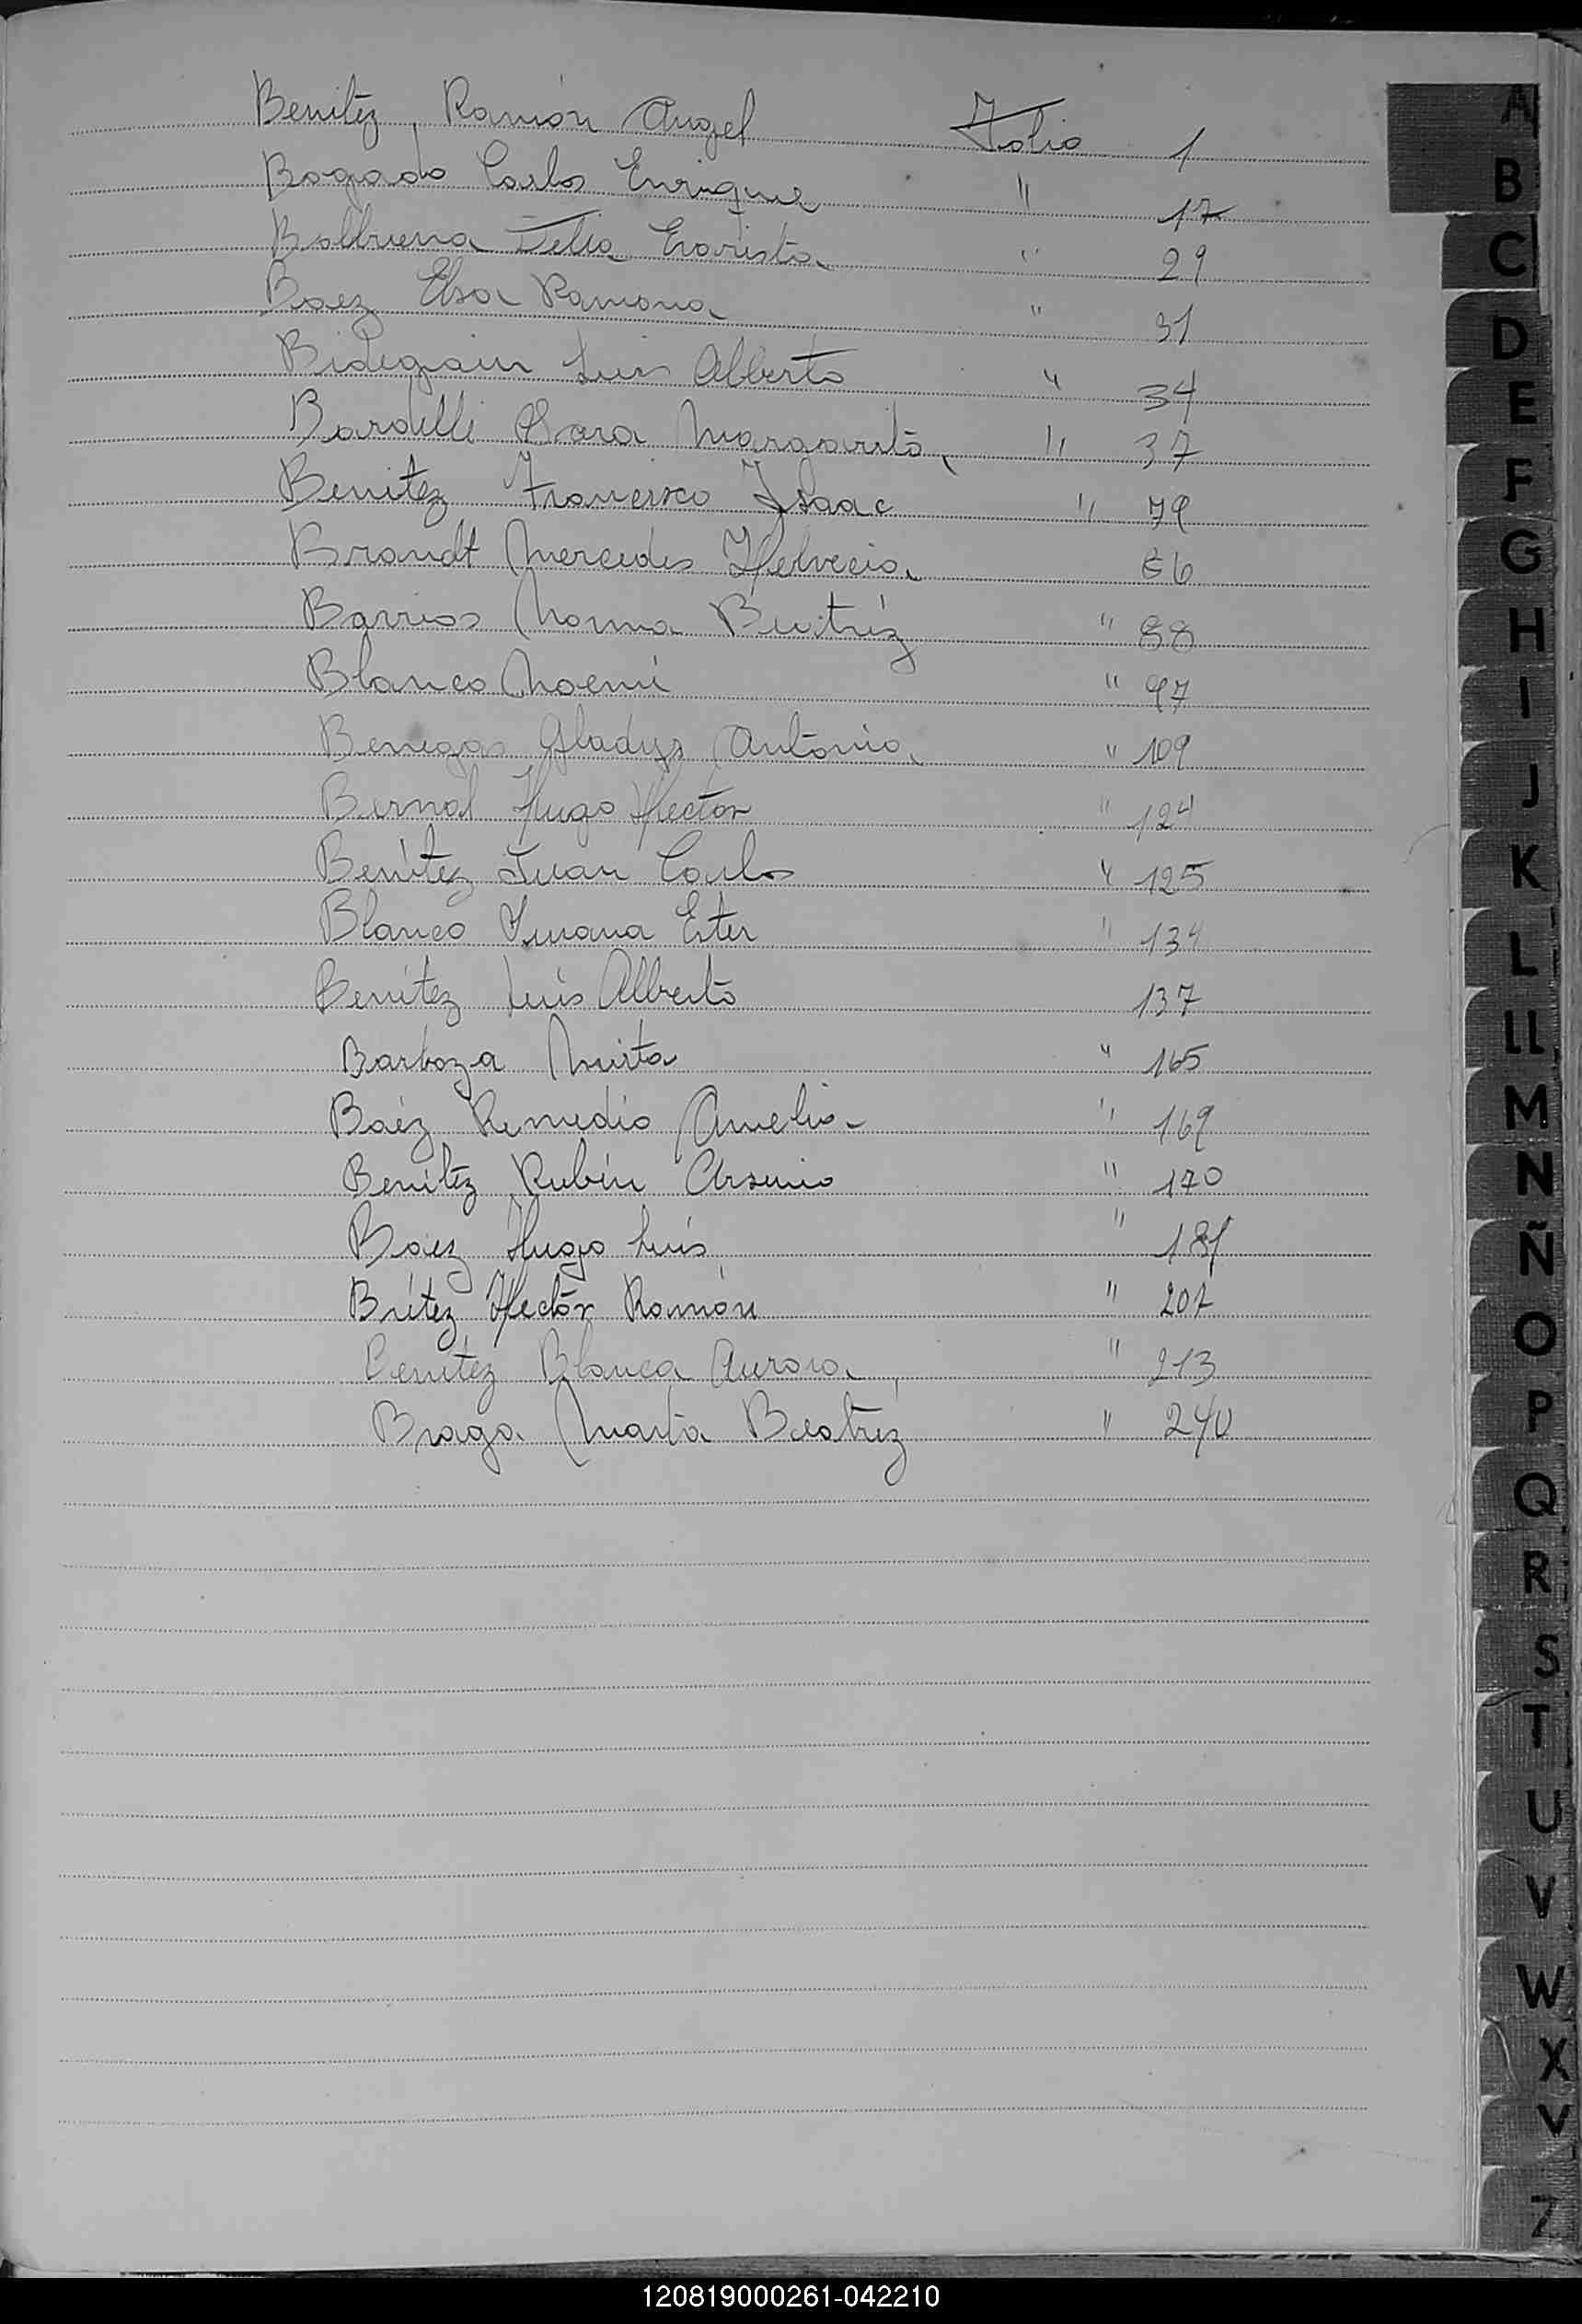 Benitez, Ramón Angel Folio 1
Bogado Carlos Enrique " 17
Balbuena Delia Evarista " 29
Baez Elsa Ramona " 31
Bidegain Luis Alberto " 34
Bardelli Sara Margarita " 37
Benitez Francisco Isaac " 79
Brandt Mercedes Helvecia 86
Barrios Norma Beatriz " 88
Blanco Noemi " 97
Benegas Gladys Antonia " 109
Bernal Hugo Hector " 124
Benítez Juan Carlos " 125
Blanco Susana Ester " 134
Benítez Luis Alberto 137
Barboza Mirta " 165
Baéz Remedio Amelia " 169
Benitéz Rubén Arsenio " 170
Baez Hugo Luis " 181
Brítez Hector Ramón " 207
Benítez Blanca Aurora " 213
Braga Marta Beatriz " 240
A
B
C
D
E
F
G
H
I
J
K
L
Ll
M
N
Ñ
O
P
Q
R
S
T
U
V
W
X
Y
Z
120819000261-042210